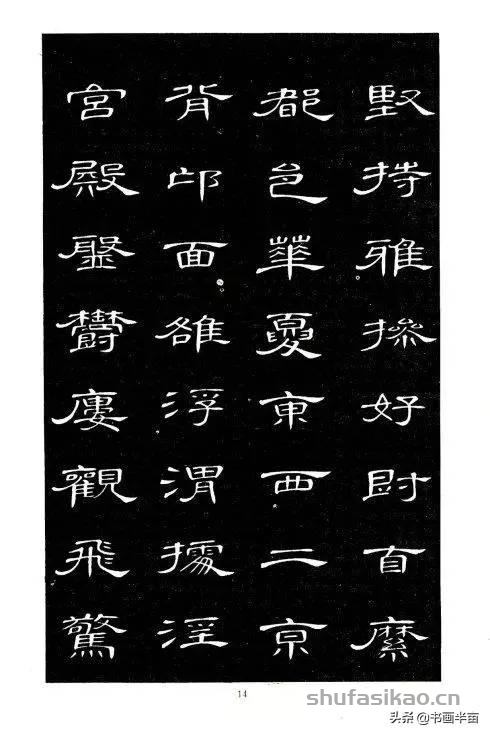 堅持雅操好爵自縻
都邑華夏東西二京
背邙面雒浮渭據涇
宮殿盤鬱樓觀飛驚
14
shufasikao.cn
头条 @书画半亩